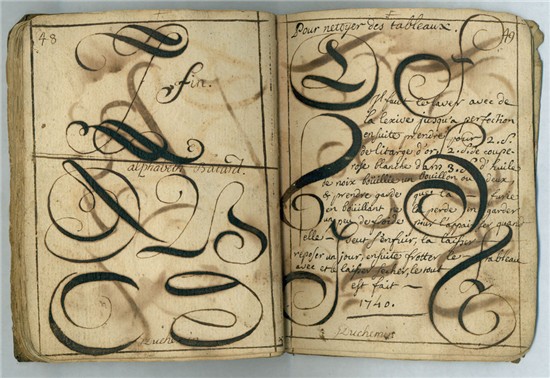 48
fin.
alphabeth Batard.
Duchemin
Pour nettoyer des tableaux.
49
Il faut les laver avec de
la lesive jusqu'a perfection
ensuite prendre pour 2. S.
de litarge d'or 2. S. de coupe-
rose blanche d'huile
de noix bouillie un bouillon ou deux
& prendre garde que la furie
en bouillant ne la perde, en garder
un peu de froide pour l'appaiser quand
elle veut s'enfuir, la laisser
reposer un jour, ensuite frotter le tableau
avec et la laisser secher, le tout
est fait —
1740.
Duchemin